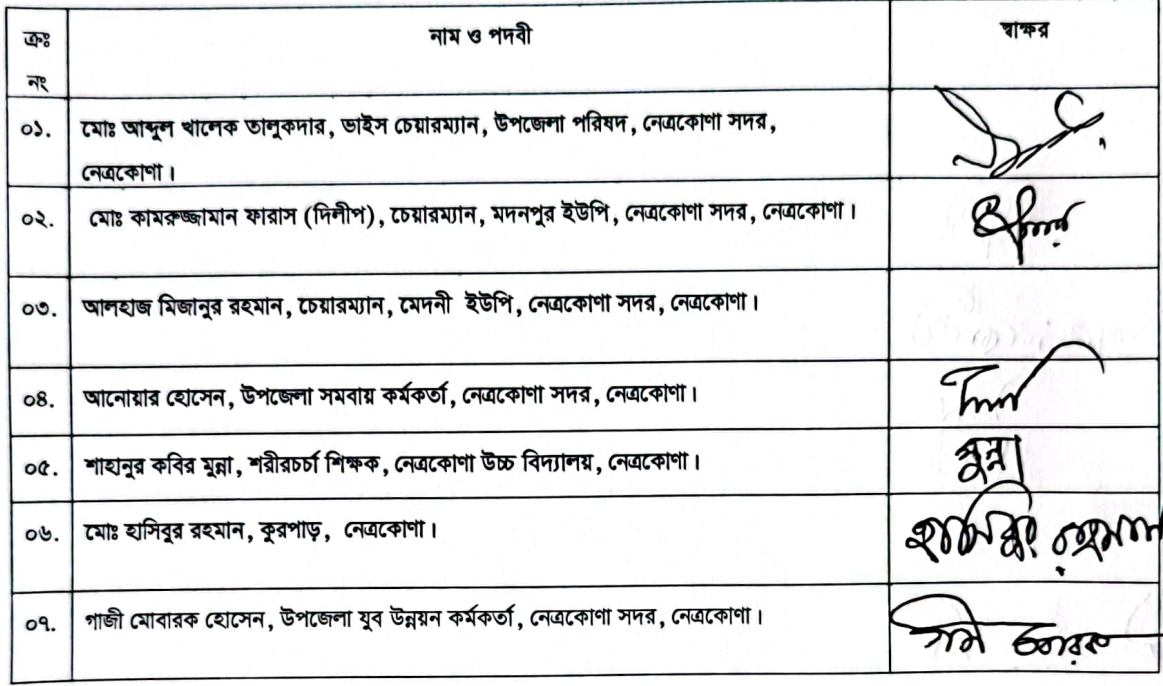 ক্রঃ নং নাম ও পদবী স্বাক্ষর
০১. মোঃ আব্দুল খালেক তালুকদার, ভাইস চেয়ারম্যান, উপজেলা পরিষদ, নেত্রকোণা সদর,
নেত্রকোণা।
০২. মোঃ কামরুজ্জামান ফারাস (দিলীপ), চেয়ারম্যান, মদনপুর ইউপি, নেত্রকোণা সদর, নেত্রকোণা।
০৩. আলহাজ মিজানুর রহমান, চেয়ারম্যান, মেদনী ইউপি, নেত্রকোণা সদর, নেত্রকোণা।
০৪. আনোয়ার হোসেন, উপজেলা সমবায় কর্মকর্তা, নেত্রকোণা সদর, নেত্রকোণা।
০৫. শাহানুর কবির মুন্না, শরীরচর্চা শিক্ষক, নেত্রকোণা উচ্চ বিদ্যালয়, নেত্রকোণা। মুন্না
০৬. মোঃ হাসিবুর রহমান, কুরপাড়, নেত্রকোণা। হাসিবুর রহমান
০৭. গাজী মোবারক হোসেন, উপজেলা যুব উন্নয়ন কর্মকর্তা, নেত্রকোণা সদর, নেত্রকোণা।